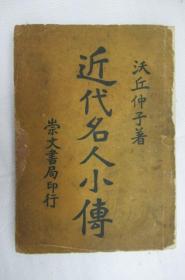 沃丘仲子著
近代名人小傳
崇文書局印行